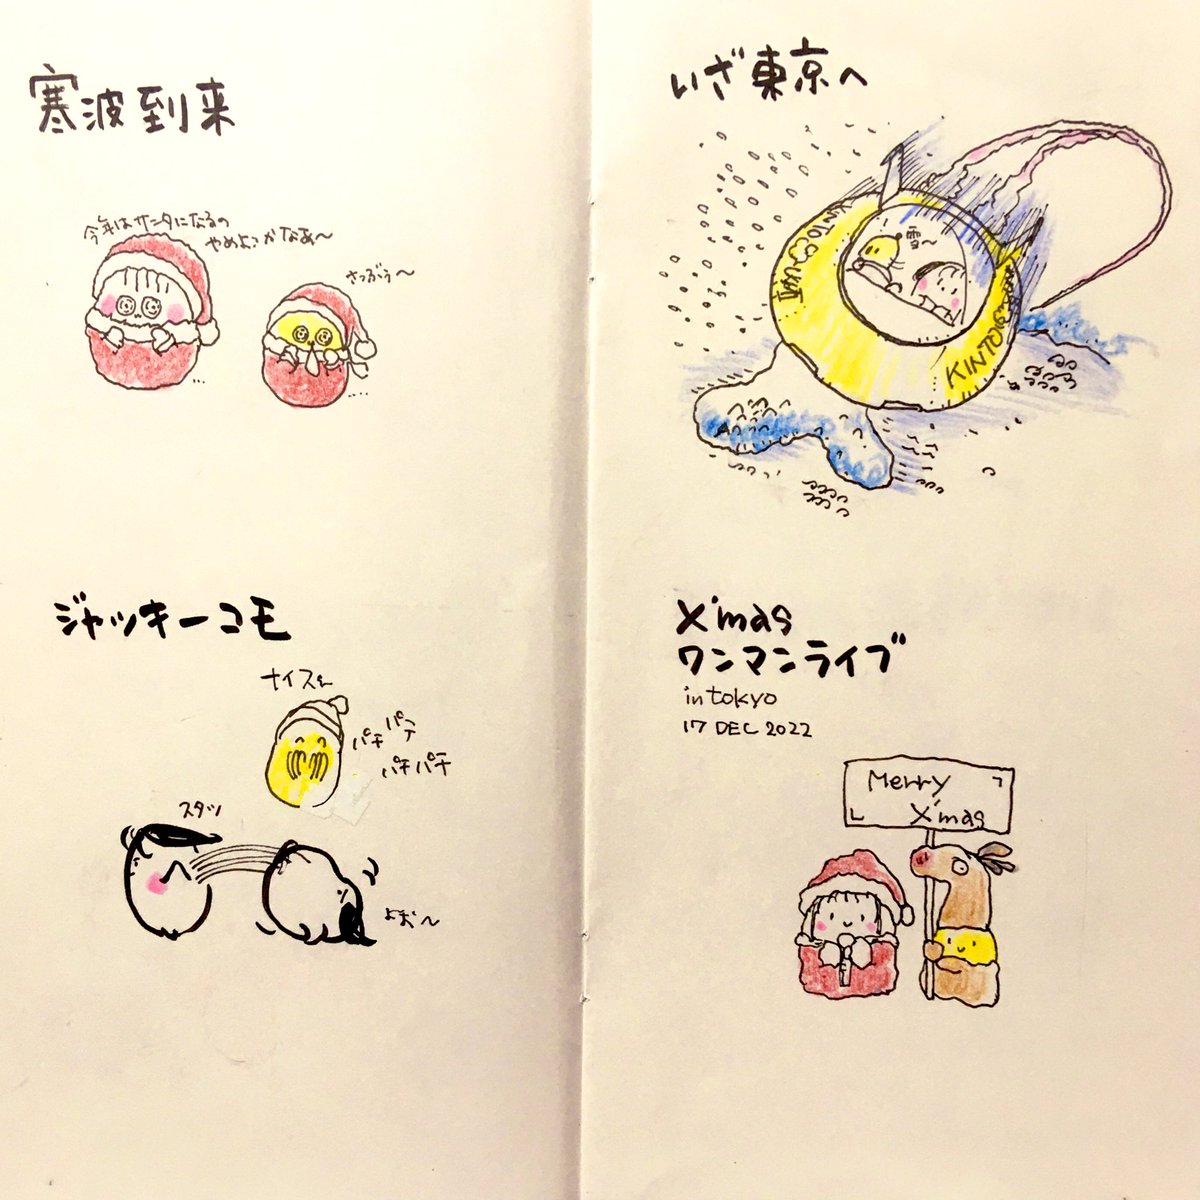 寒波到来
今年はサンタになるの
やめようかなあ〜
さっぶぅ〜
ジャッキーコモ
ナイスぅ
パチ パチ
パチ パチ
スタッ
よお〜
いざ東京へ
雪〜
KINTO
X'mas
ワンマンライブ
in tokyo
17 DEC 2022
Merry
X'mas